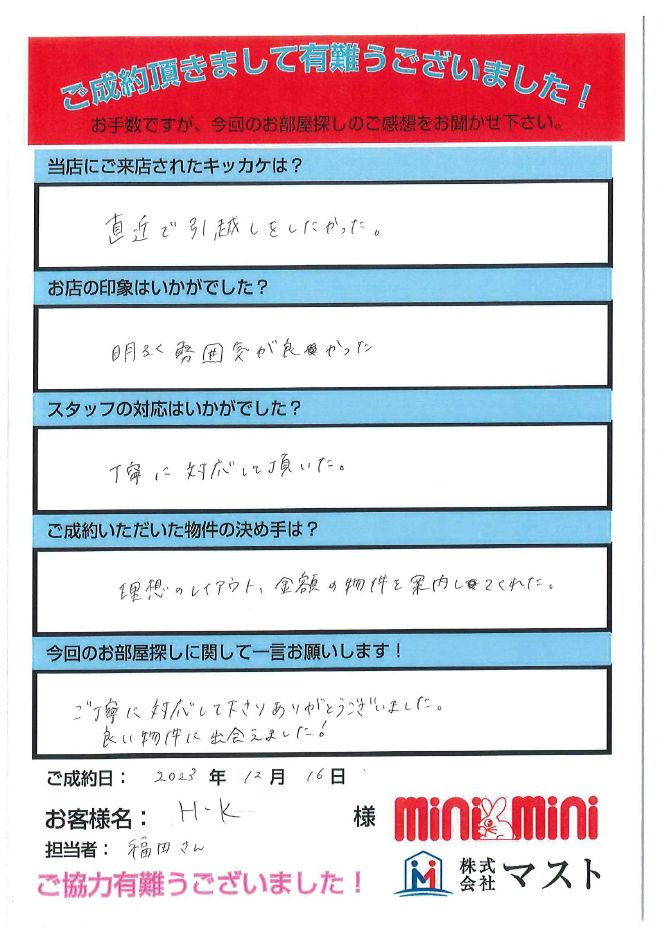 ご成約頂きまして有難うございました！
お手数ですが、今回のお部屋探しのご感想をお聞かせ下さい。
当店にご来店されたキッカケは？
直近で引越しをしたかった。
お店の印象はいかがでした？
明るく雰囲気が良かった
スタッフの対応はいかがでした？
丁寧に対応して頂いた。
ご成約いただいた物件の決め手は？
理想のレイアウト、金額の物件を案内してくれた。
今回のお部屋探しに関して一言お願いします！
ご丁寧に対応して下さりありがとうございました。
良い物件に出会えました！
ご成約日： 2023 年 12 月 16 日
お客様名： H・K 様
担当者： 福田さん
ご協力有難うございました！
mini mini
株式会社 マスト